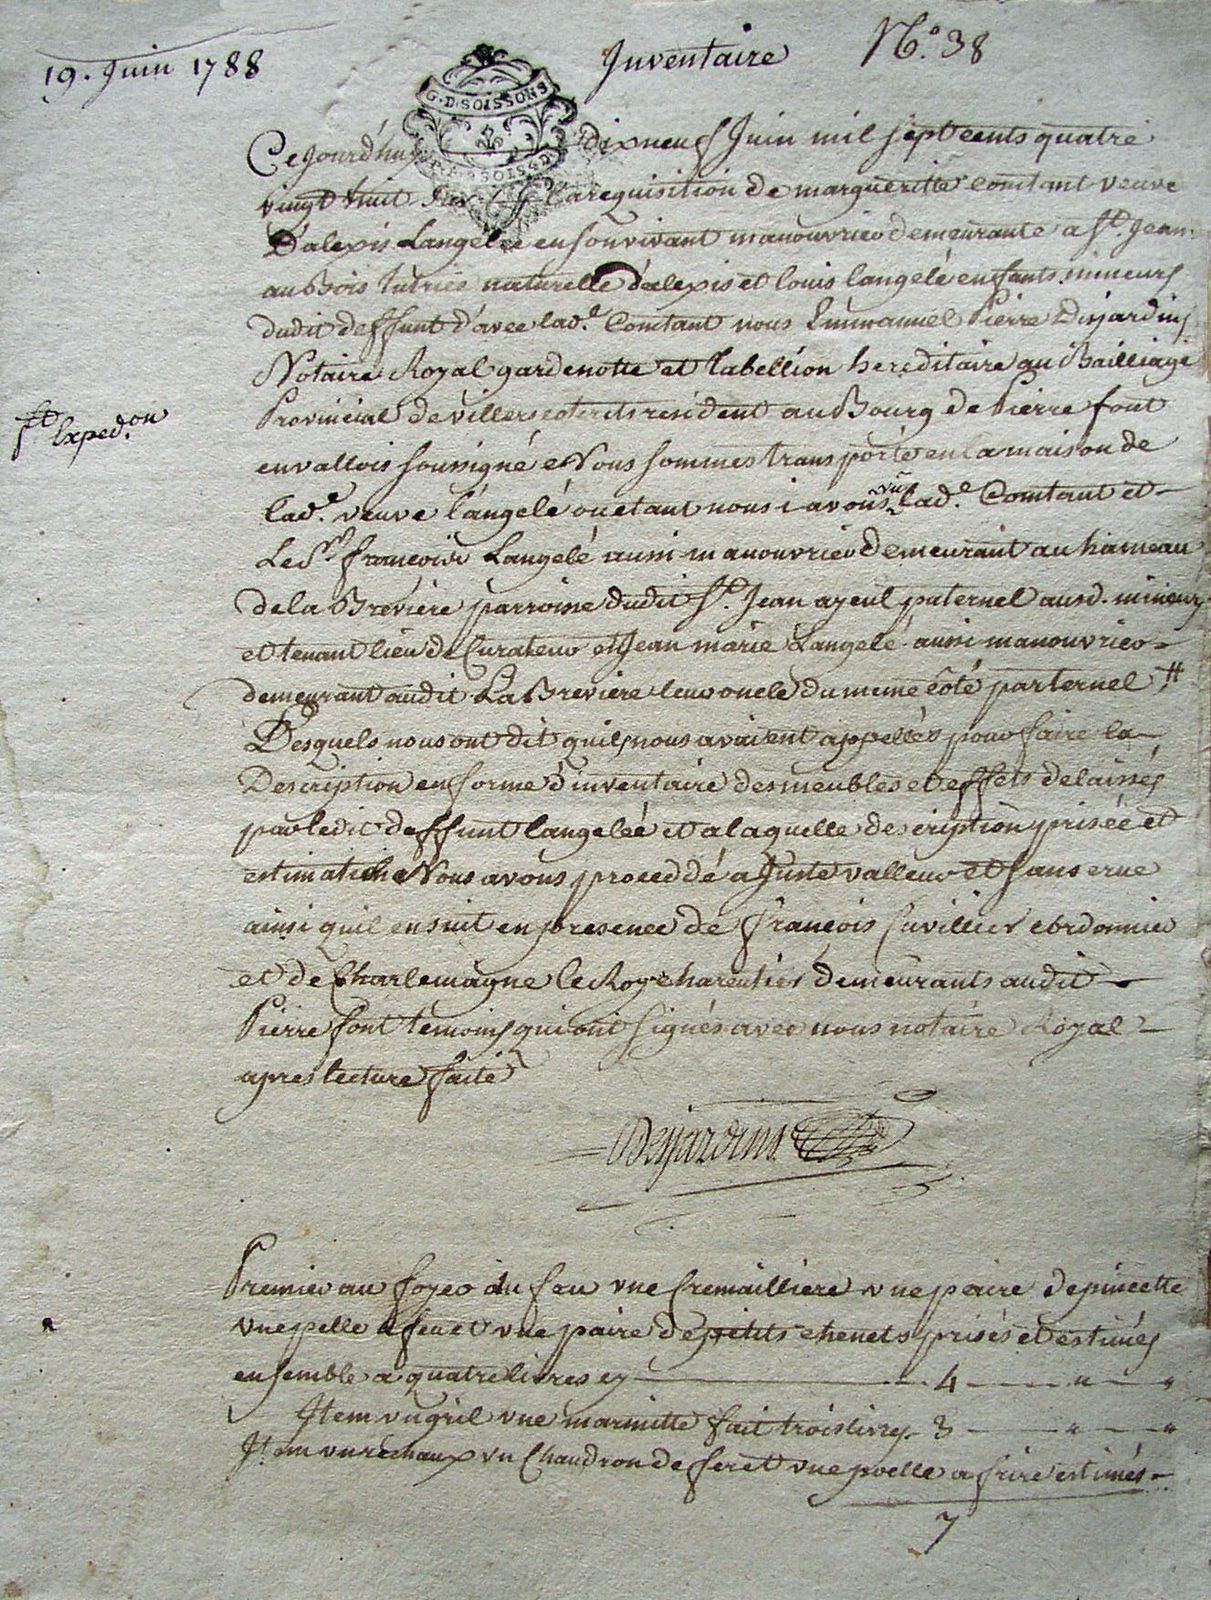 19. Juin 1788
Inventaire N.° 38
G. D. SOISSONS
Ce jourd'huy dixneuf Juin mil septcents quatre
vingt huit a la requisition de margueritte Comtant veuve
D'alexis Langelée en son vivant manouvrier demeurante a St. Jean
au Bois tutrice naturelle d'alexis et louis langelé enfants mineurs
dudit deffunt d'avec lad.e Comtant nous Emmanuel Pierre Desjardins
Notaire Royal gardenotte et tabellion hereditaire au Bailliage
Provincial de villerscoterets resident au Bourg de Pierre font
ft Exped.on
en vallois soussigné Nous sommes transporté en la maison de
lad.e veuve langelé ou etant nous i avons vu lad.e Comtant et
Le Sr. françois Langelé aussi manouvrier demeurant au hameau
de la Breviere parroisse dudit St. Jean ayeul paternel ausd. mineurs
et tenant lieu de Curateur et Jean marie Langelé aussi manouvrier
demeurant audit La Breviere leur oncle du meme côté parternel #
Desquels nous ont dit quils nous avaient appellés pour faire la
Description en forme d'inventaire des meubles et effets delaissés
par ledit deffunt langeleé et a laquelle description prisée et
estimation Nous avons proceddé a Juste valleur et sans crue
ainsi quil ensuit en presence de françois Cuvillier cordonnier
et de Charlemagne le Roy charentier demeurants audit
Pierre font temoins qui ont signés avec nous notaire Royal
apres lecture faite
Desjardins
Premier au foyer du feu une Cremailliere une paire de pincette
une pelle a feu et une paire de petits chenets prisés et estimés
ensemble a quatre livres cy 4 " "
Item un gril une marmitte fait trois livres 3 " "
Item un réchaux un Chaudron de fer et une poelle a frire estimés
7